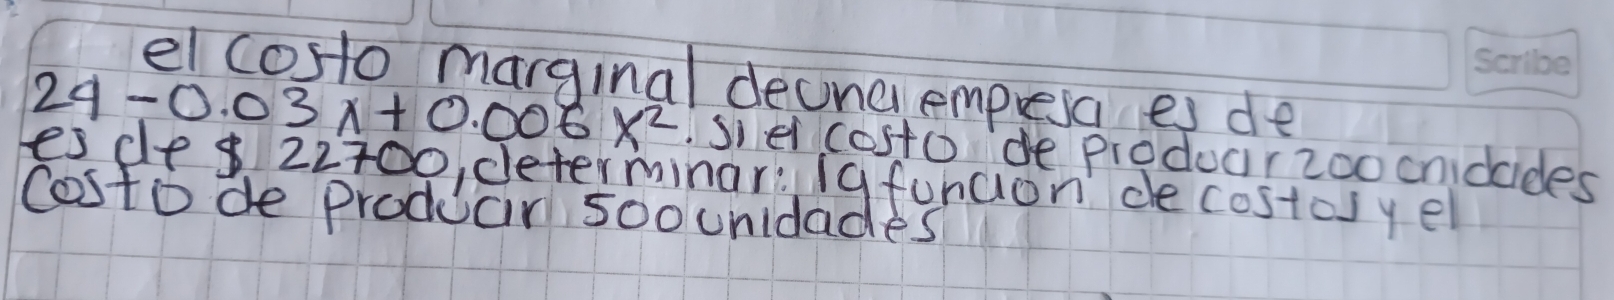 Scribe
el costo marginal de una empresa es de
24-0.03x+0.006x². si el costo de producir 200 unidades
es de $ 22700, determinar: la función de costos y el
costo de producir 500 unidades